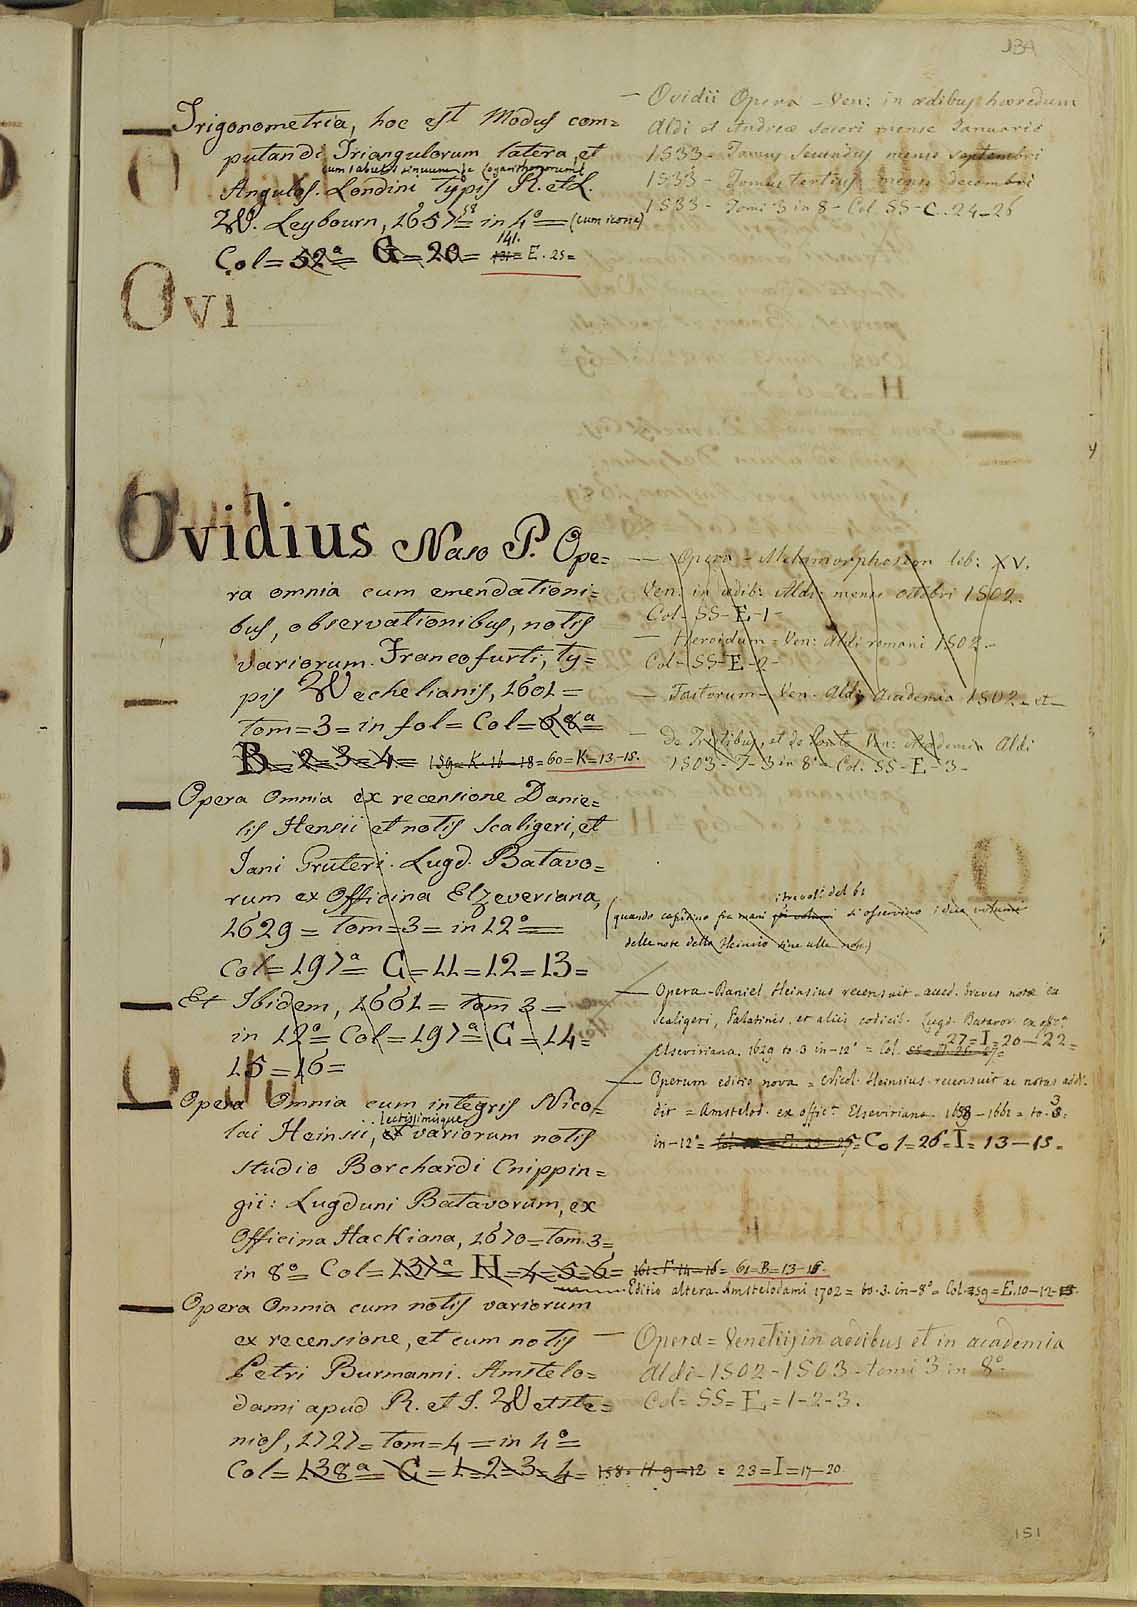 134
Trigonometria, hoc est Modus com=
putandi Triangulorum latera, et
cum tabulis sinuum &c Logarithmorum
Angulos. Londini Typis R. et L.
W. Leybourn, 1657 58 in 4º = (cum icone)
Col = 52ª = G = 20 = 141. 131 = E. 25 =
— Ovidii Opera – Ven: in ædibus hæredum
Aldi et Andreæ soceri mense Januario
1533 – Tomus secundus mense septembri
1533 – Tomus tertius mense decembri
1533 – Tomi 3 in 8 – Col. SS – C. 24–26
Ovi
Ovidius Naso P. Ope=
ra omnia cum emendationi=
bus, observationibus, notis
variorum. Francofurti, ty=
pis Wechelianis, 1601 =
tom = 3 = in fol = Col = 68ª
B = 2 = 3 = 4 = 159 = K. 16–18 = 60 = K = 13–15.
— Opera – Metamorphoseon lib: XV.
Ven: in ædib: Aldi: mense octobri 1502.
Col – SS – E – 1 –
— Heroidum – Ven: Aldi romani 1502 –
Col – SS – E – 2 –
— Fastorum – Ven. Aldi Academia 1502 – et –
— De Tristibus, et de Ponto Ven: Academia Aldi
1503 – T – 3 in 8º – Col: SS – E – 3 –
Opera Omnia ex recensione Danie=
lis Hensii et notis Scaligeri, et
Jani Gruteri. Lugd. Batavo=
rum ex Officina Elzeveriana,
1629 = tom = 3 = in 12º =
Col = 197ª = G = 11 = 12 = 13 =
(quando capitino fra mani i tre vol: del 61 si osservino i due volumi
delle note dello Heinsio sine ulla nota.)
Et Ibidem, 1661 = tom 3 =
in 12º = Col = 197ª = G = 14 =
15 = 16 =
— Opera – Daniel Heinsius recensuit – acced. breves notæ ex
Scaligeri, Palatinis, et aliis codicib. Lugd. Batavor. ex offª
Elseviriana. 1629 to. 3 in–12º = Col. 27 = I = 20–22 =
— Operum editio nova = Nicol. Heinsius recensuit ac notas addi=
dit = Amstelod. ex offic: Elseviriana 1658–1661 = to. 3 =
in–12º = Col = 26 = I = 13–15 =
Opera Omnia cum integris Nico=
lai Heinsii, lectissimisque variorum notis
studio Borchardi Cnippin=
gii: Lugduni Batavorum, ex
Officina Hackiana, 1670 = tom. 3 =
in 8º = Col = 137ª = H = 4 = 5 = 6 = 161 = F. 14 = 16 = 61 = B = 13–15.
Editio altera – Amstelodami 1702 = to. 3. in–8º = Col. 359 = E. 10–12
Opera Omnia cum notis variorum
ex recensione, et cum notis
Petri Burmanni. Amstelo=
dami apud R. et J. Wetste=
nios, 1727 = tom = 4 = in 4º =
Col = 138ª = G = 1 = 2 = 3 = 4 = 158. H. 9 = 12 = 23 = I = 17–20.
— Opera = Venetiis in aedibus et in academia
Aldi – 1502 – 1503 – tomi 3 in 8º
Col = SS = E = 1–2–3.
151